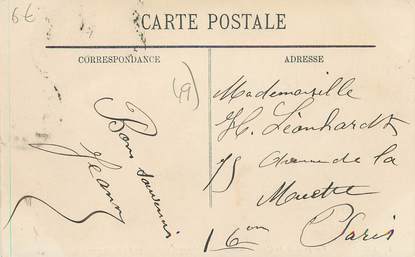 6€
CARTE POSTALE
CORRESPONDANCE
ADRESSE
Bon souvenir
Jeanne
Mademoiselle
H. Léonhardt
75 Avenue de la
Muette
Paris
16em